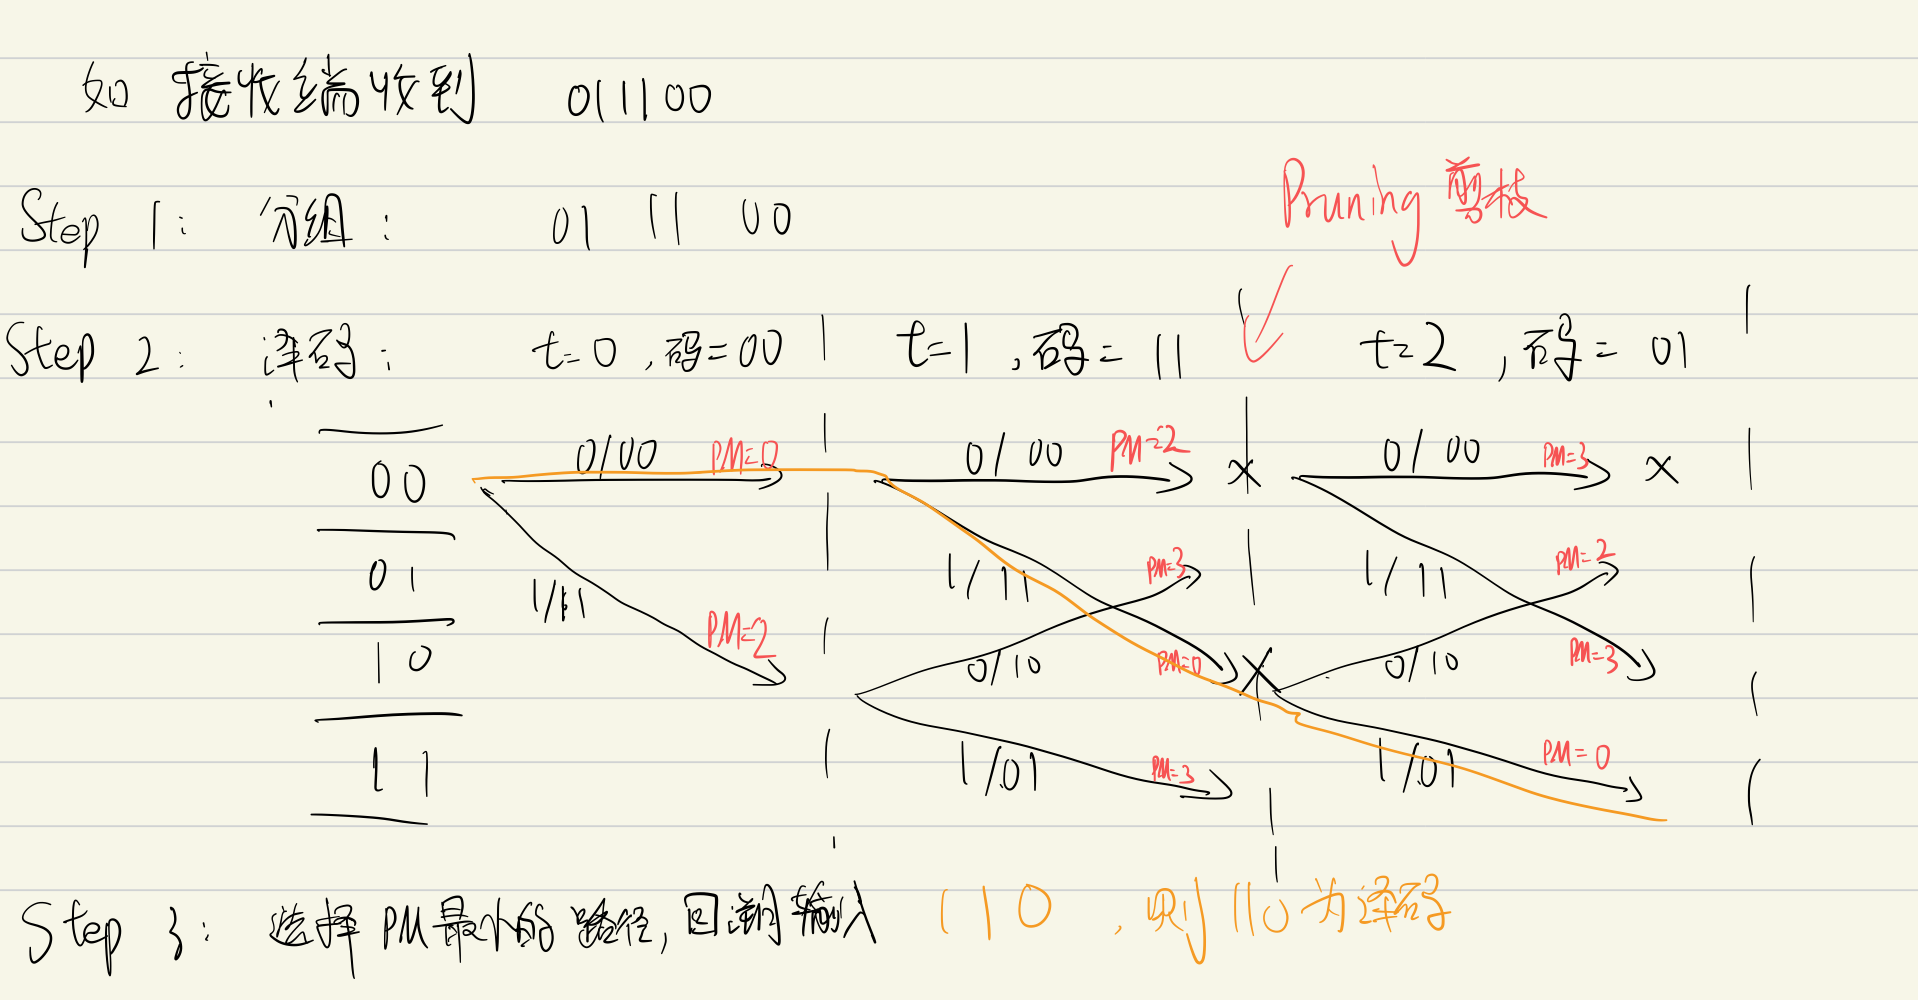 如 接收端收到 011100
Step 1: 分组: 01 11 00
Pruning 剪枝
Step 2: 译码: t=0,码=00 t=1,码=11 t=2,码=01
00 0/00 PM=0 0/00 PM=2 x 0/00 PM=3 x
01 1/11 1/11 PM=3 1/11 PM=2
10 PM=2 0/10 PM=0 x 0/10 PM=3
11 1/01 PM=3 1/01 PM=0
Step 3: 选择PM最小的路径,回溯输入 110,则110为译码